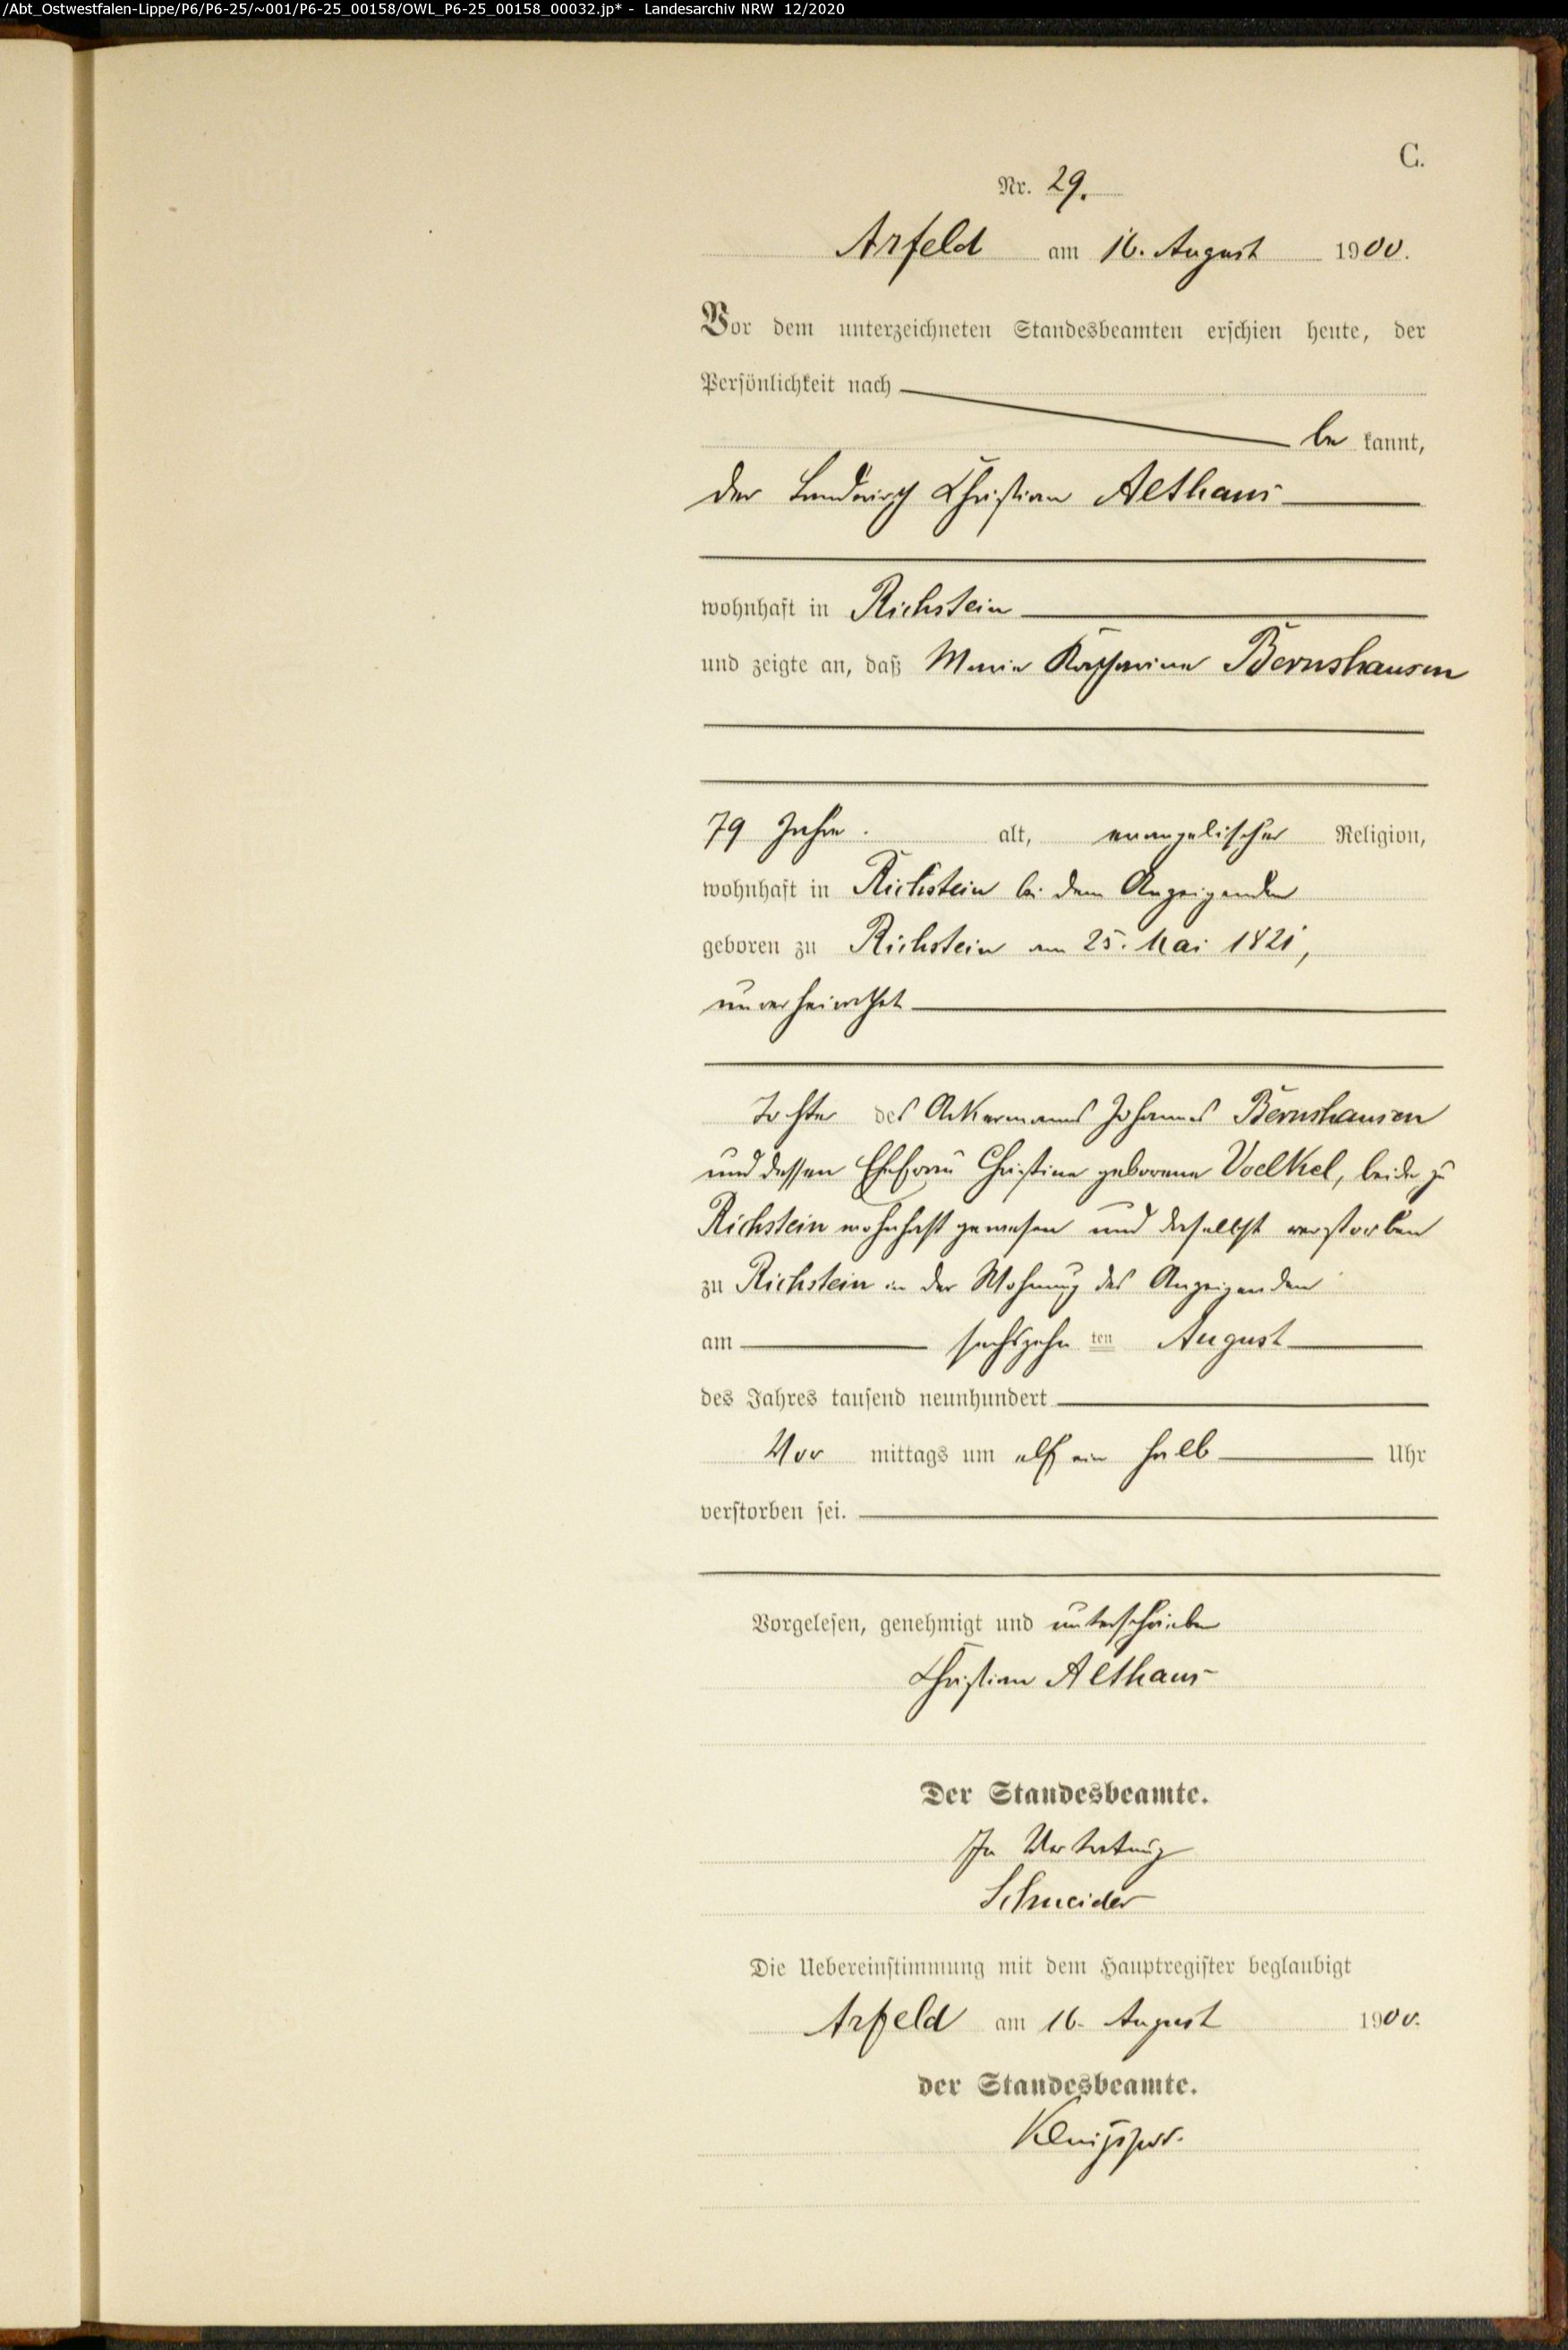 /Abt_Ostwestfalen-Lippe/P6/P6-25/~001/P6-25_00158/OWL_P6-25_00158_00032.jp* - Landesarchiv NRW 12/2020
C.
Nr. 29.
Arfeld am 16. August 1900.
Vor dem unterzeichneten Standesbeamten erschien heute, der
Persönlichkeit nach
be kannt,
der Landwirth Christian Althaus
wohnhaft in Richstein
und zeigte an, daß Maria Katharina Bernshausen
79 Jahre alt, evangelischer Religion,
wohnhaft in Richstein bei dem Anzeigenden
geboren zu Richstein am 25. Mai 1821,
unverheirathet
Tochter des Ackermanns Johannes Bernshausen
und dessen Ehefrau Christine geborene Voelkel, beide zu
Richstein wohnhaft gewesen und daselbst verstorben
zu Richstein in der Wohnung des Anzeigenden
am sechszehn ten August
des Jahres tausend neunhundert
Vor mittags um elf ein halb Uhr
verstorben sei.
Vorgelesen, genehmigt und unterschrieben
Christian Althaus
Der Standesbeamte.
In Vertretung
Schneider
Die Uebereinstimmung mit dem Hauptregister beglaubigt
Arfeld am 16. August 1900.
der Standesbeamte.